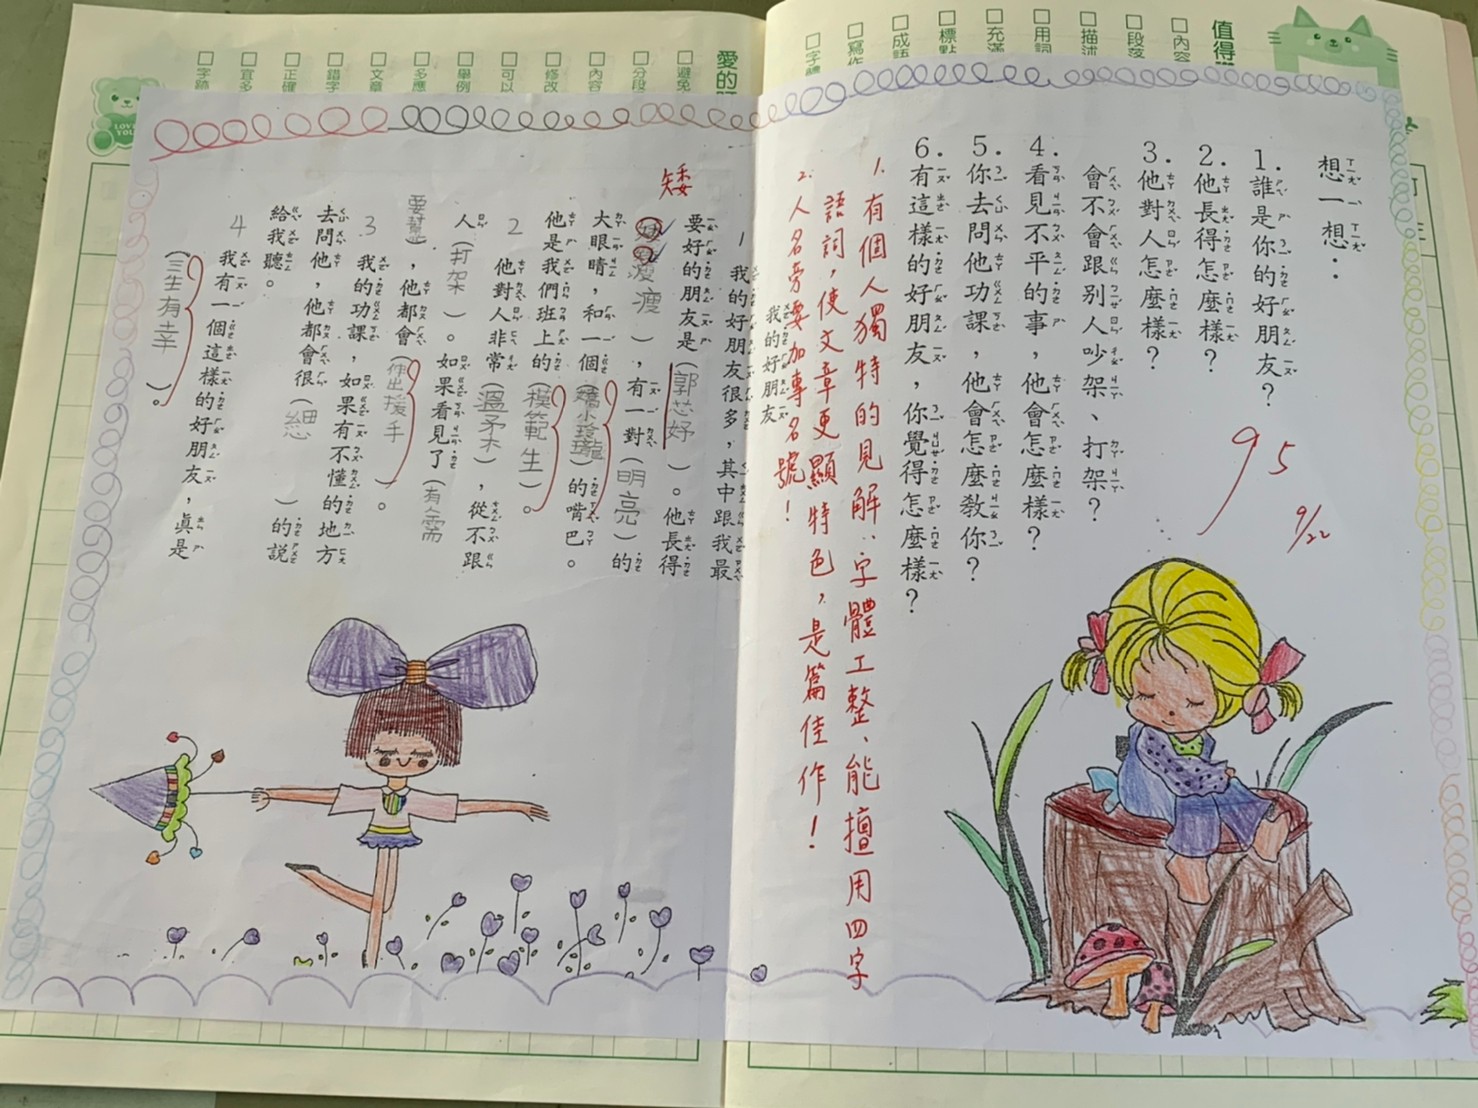 值得
內容
段落
描述
用詞
充滿
標點
成語
寫作
字體
想一想：
1.誰是你的好朋友？
2.他長得怎麼樣？
3.他對人怎麼樣？
會不會跟別人吵架、打架？
4.看見不平的事，他會怎麼樣？
5.你去問他功課，他會怎麼教你？
6.有這樣的好朋友，你覺得怎麼樣？
95
9/22
1.有個人獨特的見解，字體工整、能擅用四字
語詞，使文章更顯特色，是篇佳作！
2.人名旁要加專名號！
愛的
避免
分段
內容
修改
可以
舉例
多應
文章
錯字
正確
宜多
字跡
LOVE YOU
我的好朋友
1 我的好朋友很多，其中跟我最
要好的朋友是（郭芯妤）。他長得
矮
瘦），有一對（明亮）的
大眼睛，和一個（嬌小玲瓏）的嘴巴。
他是我們班上的（模範生）。
2 他對人非常（溫柔），從不跟
人（打架）。如果看見了（有人需
要幫），他都會（伸出援手）。
3 我的功課，如果有不懂的地方
去問他，他都會很（細）的說
給我聽。
4 我有一個這樣的好朋友，真是
（三生有幸）。